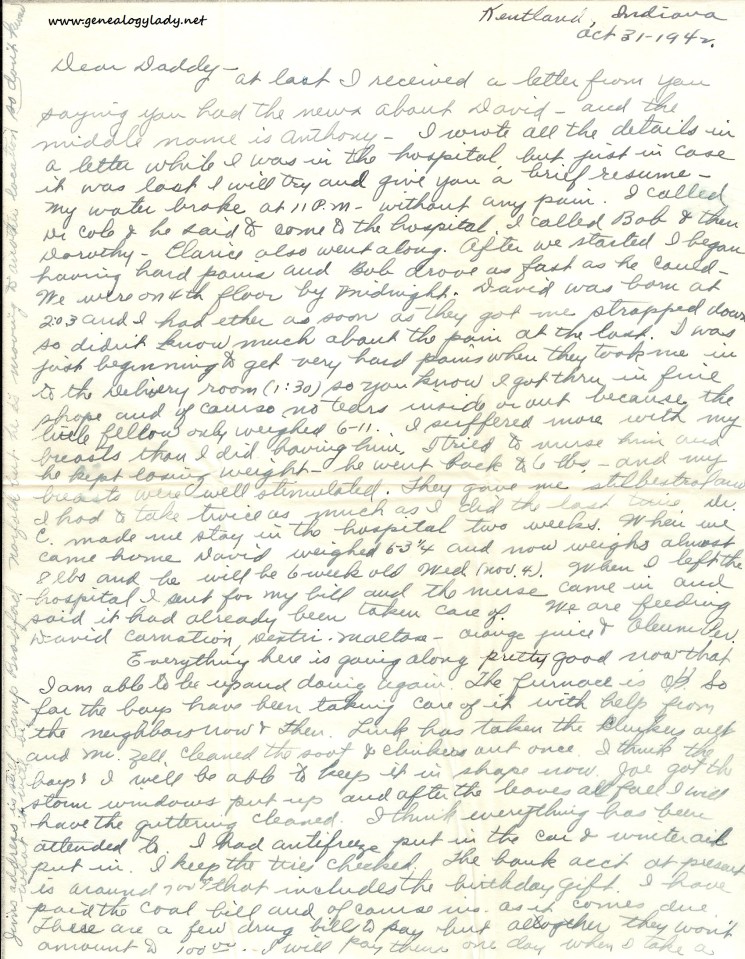 www.genealogylady.net
Kentland, Indiana
Oct 31-1942.
Dear Daddy - at last I received a letter from you
saying you had the news about David - and the
middle name is Anthony - I wrote all the details in
a letter while I was in the hospital but just in case
it was lost I will try and give you a brief resume -
My water broke at 11 P.M - without any pain. I called
Dr Cole & he said to come to the hospital. I called Bob & then
Dorothy - Clarice also went along. After we started I began
having hard pains and Bob drove as fast as he could -
We were on 4th floor by midnight. David was born at
2:03 and I had ether as soon as they got me strapped down
so didn't know much about the pain at the last. I was
just beginning to get very hard pains when they took me in
to the delivery room (1:30) so you know I got thru in fine
shape and of course no tears inside or out because the
little fellow only weighed 6-11. I suffered more with my
breasts than I did having him. I tried to nurse him and
he kept losing weight - he went back to 6 lbs - and my
breasts were well stimulated. They gave me stilbestrol and
I had to take twice as much as I did the last time. Dr.
C. made me stay in the hospital two weeks. When we
came home David weighed 6-3 1/4 and now weighs almost
8 lbs. and he will be 6 week old Wed (Nov. 4). When I left the
hospital I sent for my bill and the nurse came in and
said it had already been taken care of. We are feeding
David Carnation, Dextri-Maltose - orange juice & Oleum Per.
Everything here is going along pretty good now that
I am able to be up and doing again. The furnace is OK. So
far the boys have been taking care of it with help from
the neighbors now & then. Link has taken the clinkers out
and Mr. Zell cleaned the soot & clinkers out once. I think the
boys & I will be able to keep it in shape now. Joe got the
storm windows put up and after the leaves all fall I will
have the guttering cleaned. I think everything has been
attended to. I had antifreeze put in the car & winter oil
put in. I keep the tires checked. The bank acct at present
is around 700 & that includes the birthday gift. I have
paid the coal bill and of course ins. as it comes due.
There are a few drug bills to pay but altogether they won't
amount to 100 00. - I will pay them one day when I take a
Jim's address is still Camp Bradford Norfolk but he is moving to another location so don't know
what it will be